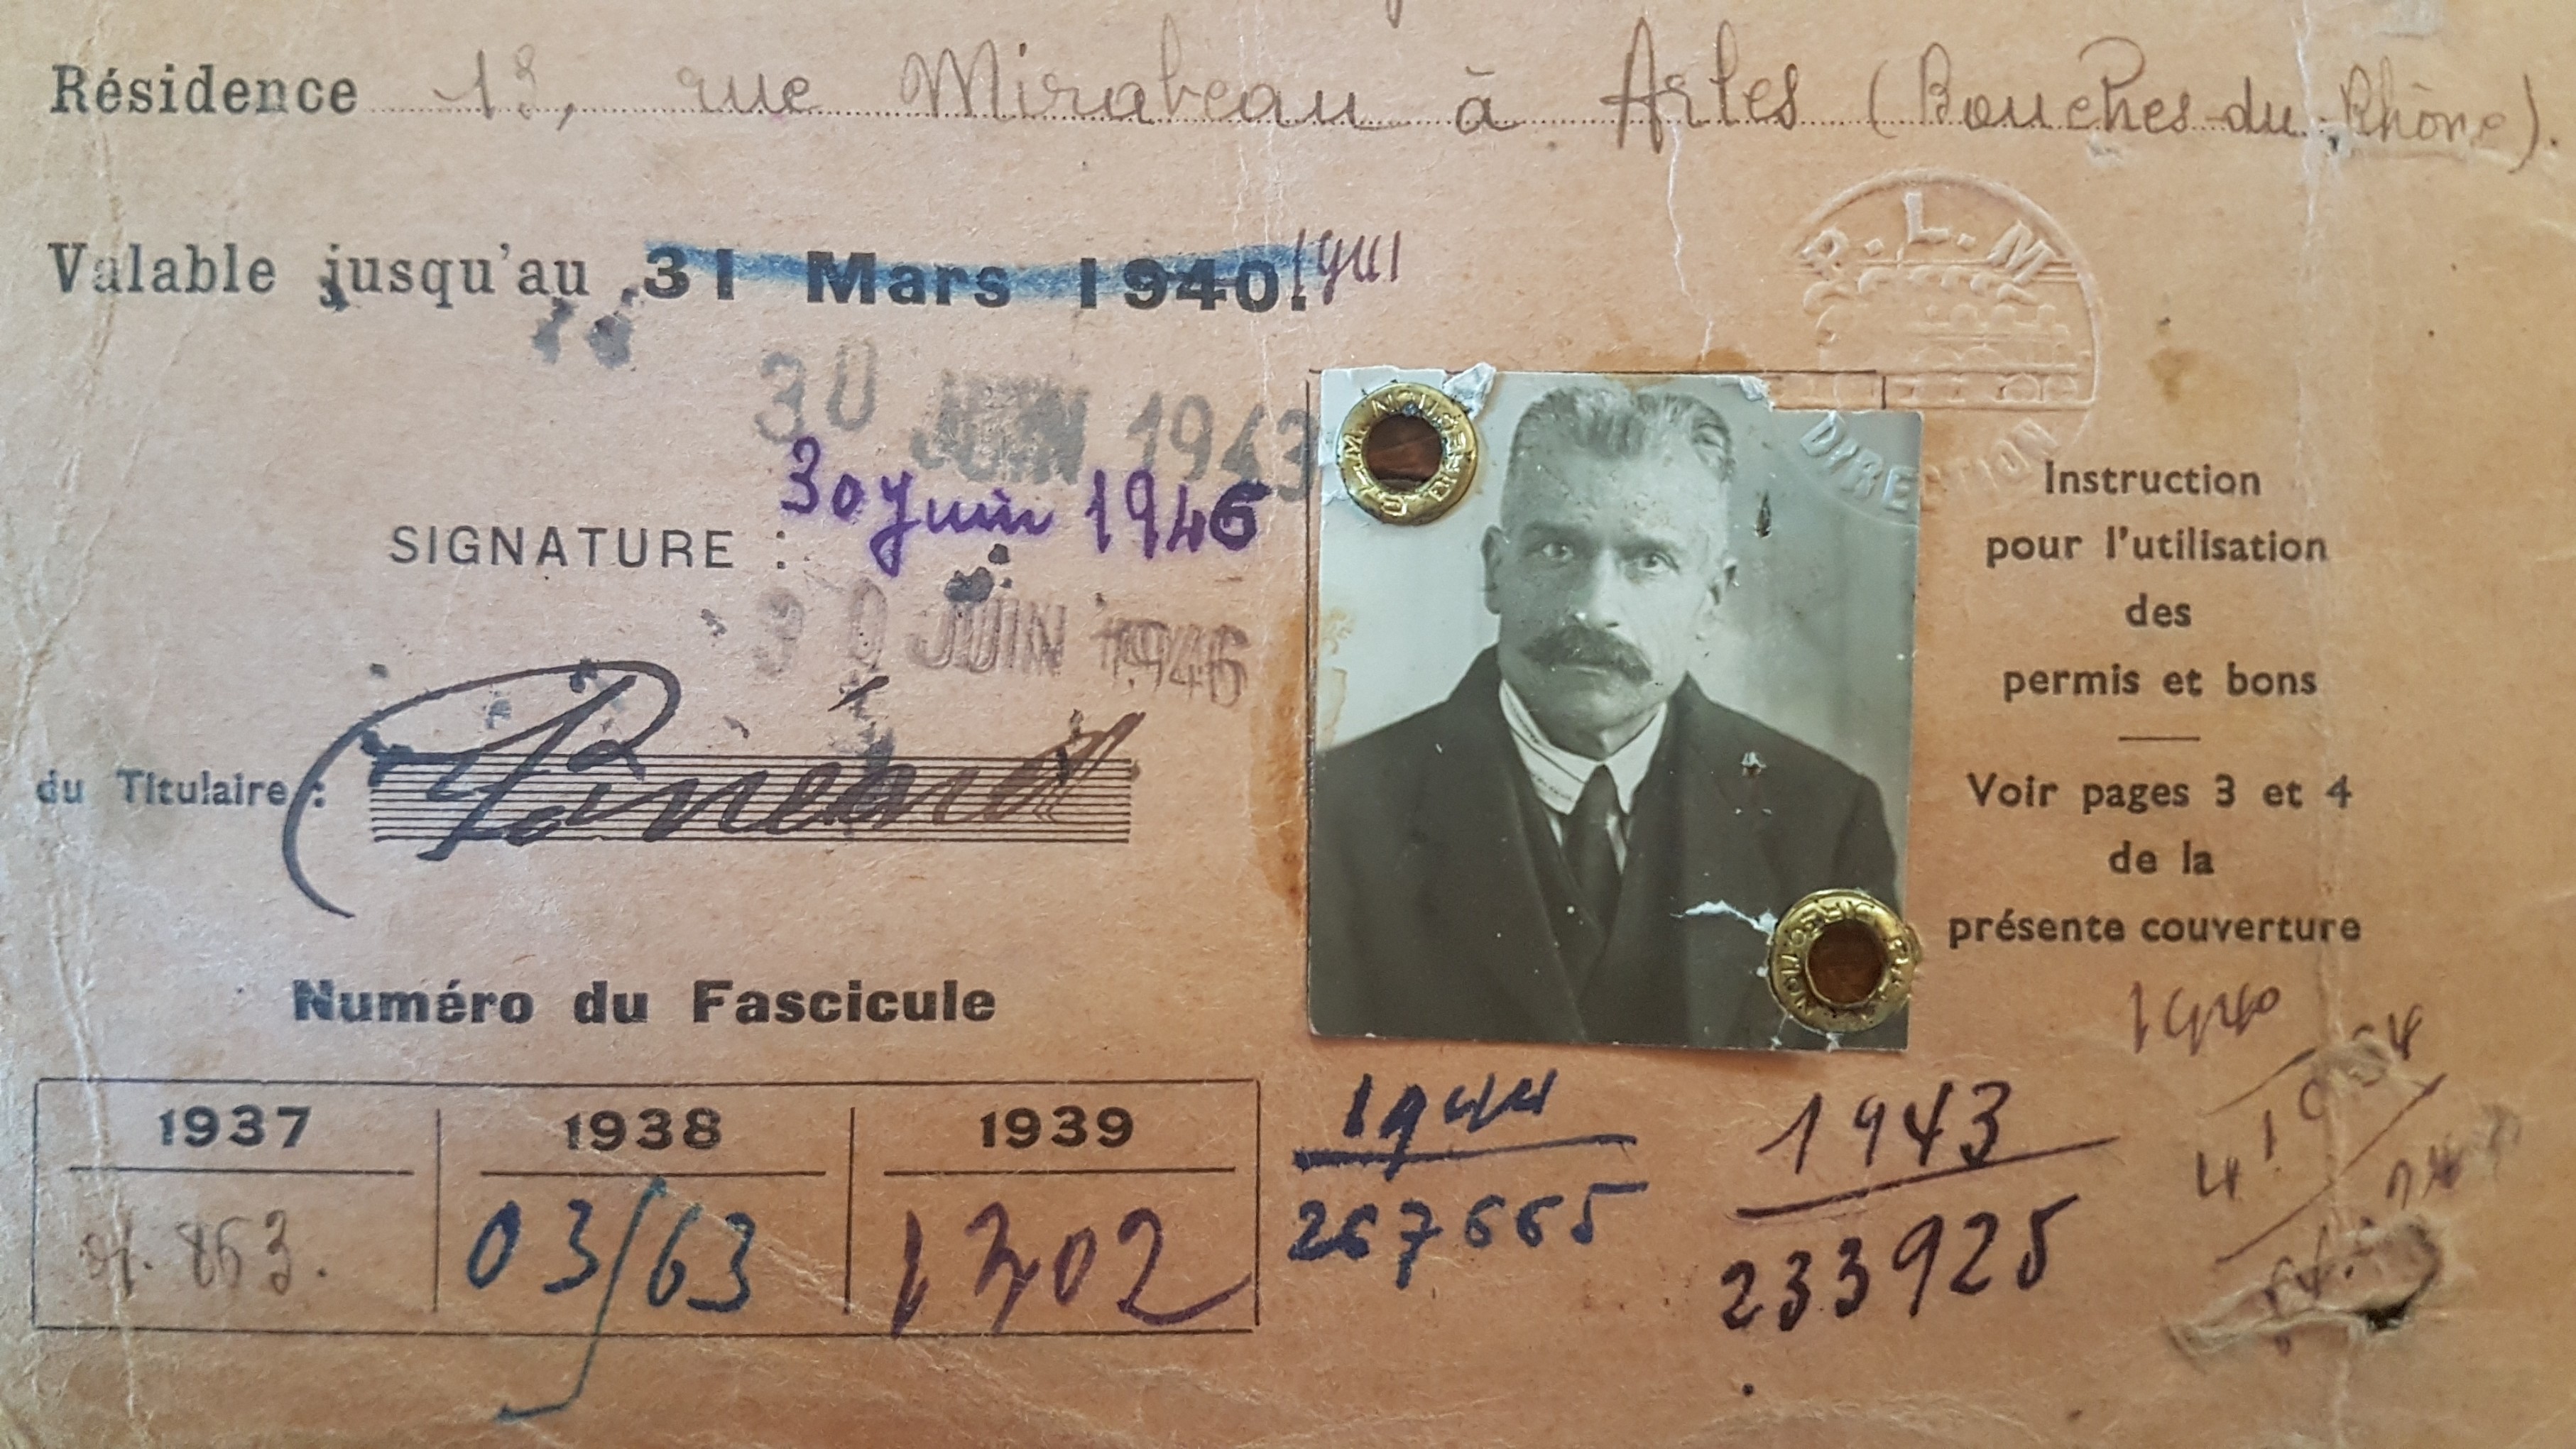 Résidence 13, rue Mirabeau à Arles (Bouches-du-Rhône).
Valable jusqu'au 31 Mars 1940. 1941
P.L.M
DIRECTION
30 JUIN 1943
30 Juin 1946
30 JUIN 1946
SIGNATURE :
du Titulaire :
Instruction
pour l'utilisation
des
permis et bons
Voir pages 3 et 4
de la
présente couverture
Numéro du Fascicule
1937 1938 1939
863. 03/63 1302
1944
267665
1943
233925
1940